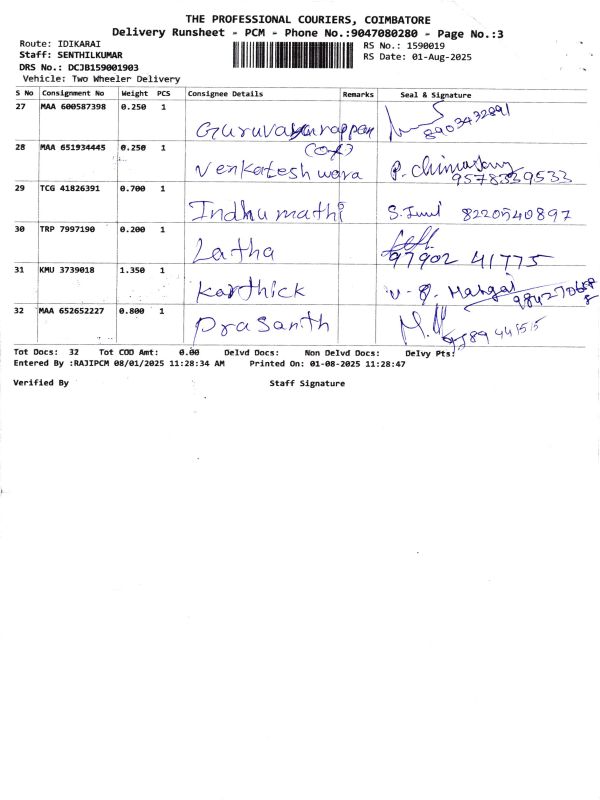 THE PROFESSIONAL COURIERS, COIMBATORE
Delivery Runsheet - PCM - Phone No.:9047080280 - Page No.:3
Route: IDIKARAI
Staff: SENTHILKUMAR
DRS No.: DCJB159001903
Vehicle: Two Wheeler Delivery
RS No.: 1590019
RS Date: 01-Aug-2025
S No Consignment No Weight PCS Consignee Details Remarks Seal & Signature
27 MAA 600587398 0.250 1 Guruvayurappan 8903432891
28 MAA 651934445 0.250 1 Venkateshwara P. Chinnasamy
9578339533
29 TCG 41826391 0.700 1 Indhumathi 8220540897
30 TRP 7997190 0.200 1 Latha
97902 41775
31 KMU 3739018 1.350 1 Karthick
32 MAA 652652227 0.800 1 Prasanth
Tot Docs: 32 Tot COD Amt: 0.00 Delvd Docs: Non Delvd Docs: Delvy Pts:
Entered By :RAJIPCM 08/01/2025 11:28:34 AM Printed On: 01-08-2025 11:28:47
Verified By Staff Signature